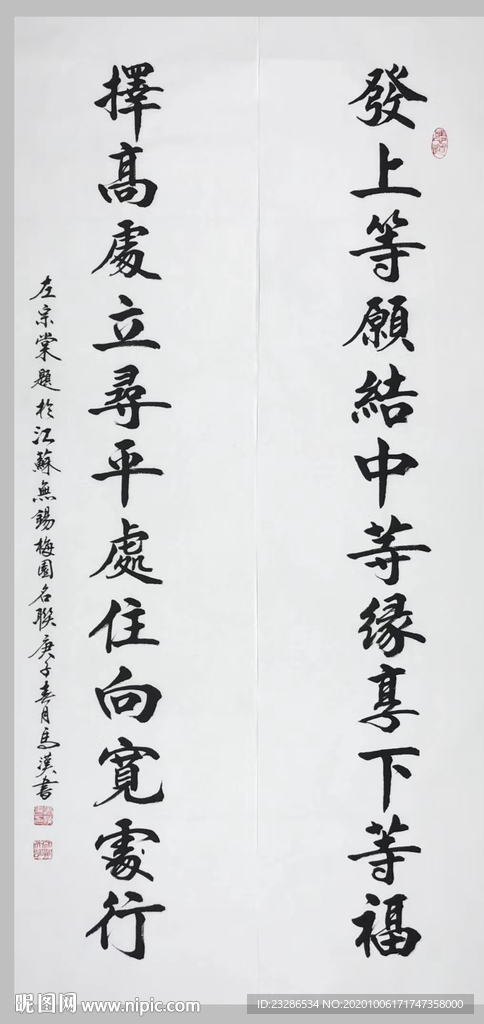 發上等願結中等緣享下等福
擇高處立尋平處住向寬處行
左宗棠題於江蘇無錫梅園名聯庚子春月馬漢書
昵图网 www.nipic.com
ID:23286534 NO:20201006171747358000